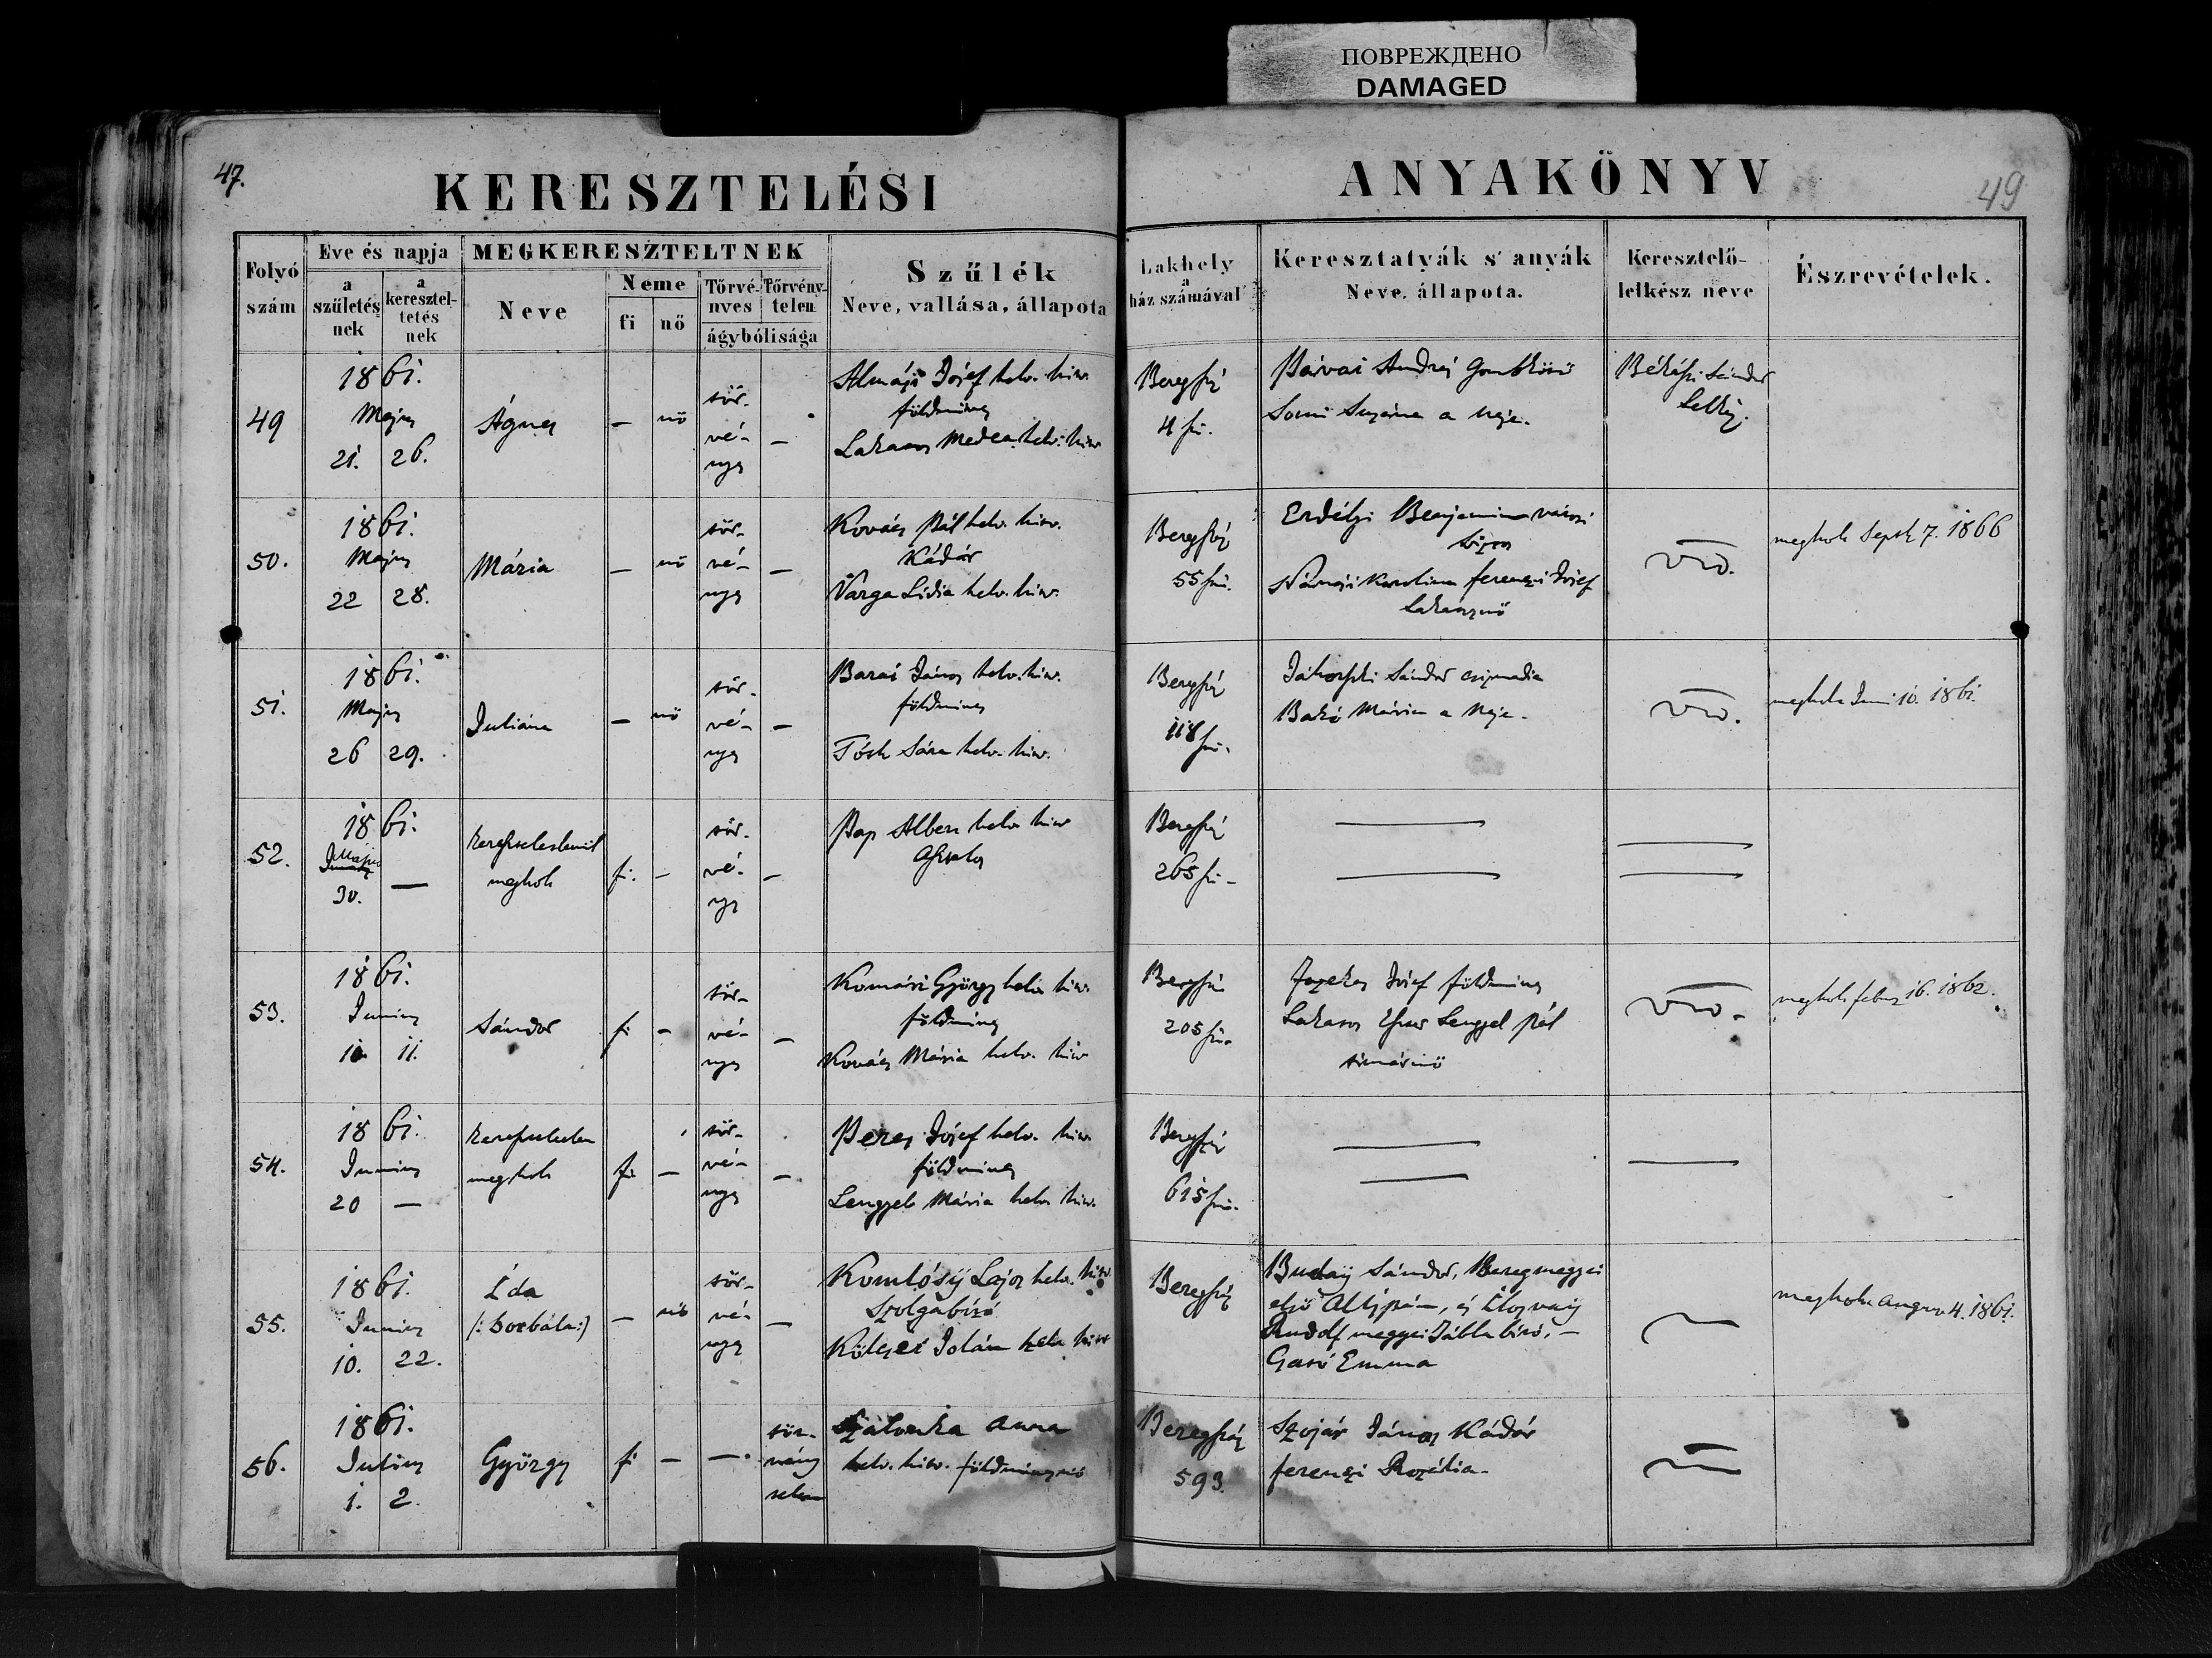 ПОВРЕЖДЕНО
DAMAGED
47.
KERESZTELÉSI
ANYAKÖNYV
49
Folyó szám
Eve és napja
a születés nek
a keresztel- tetés nek
MEGKERESZTELTNEK
Neve
Neme
fi
nő
Törvé- nyes
Törvény- telen
ágybólisága
Szűlék
Neve, vallása, állapota
Lakhely
a
ház számával
Keresztatyák s' anyák
Neve, állapota.
Keresztelő-
lelkész neve
Észrevételek.
49
1861.
Majus
21. 26.
Ágnes
— nő
tör-
vé- —
nyes
Almási Jósef helv. hitv.
földmives
Lakatos helv. hitv
Beregszász
4 sz.
Pávai András Gombkötő
Suzána a neje.
Békási Sándor
Lelkész.
50.
1861.
Majus
22 28.
Mária
— nő
tör-
vé- —
nyes
Kovács Pál helv. hitv.
Kádár
Varga Lidia helv. hitv.
Beregszász
55 sz.
Erdélyi Benjamin városi
Karolina ferenczi Jósef
meghalt Sept 7. 1866
51.
1861.
Majus
26 29.
Juliána
— nő
tör-
vé- —
nyes
Barai János helv. hitv.
földmives
Tóth Sára helv. hitv.
Beregszász
118 sz.
Sándor csizmadia
Bakó Mária a neje.
meghalt Juni 10. 1861.
52.
1861.
Majus
30. —
kereszteletlenül
meghalt
fi. —
tör-
vé- —
nyes
Pap Albert helv hitv
Asztalos
Beregszász
265 sz.
53.
1861.
Junius
10. 11.
Sándor
fi —
tör-
vé- —
nyes
Komári György helv. hitv.
földmives
Kovács Mária helv. hitv
Beregszász
205 sz.
Fazekas Jósef földmives
Lakatos Eszter Lengyel Pál
timárnő
meghalt febr 16. 1862.
54.
1861.
Junius
20 —
kereszteletlen
meghalt
fi —
tör-
vé- —
nyes
Peres Jósef helv. hitv.
földmives
Lengyel Mária helv. hitv.
Beregszász
615 sz.
55.
1861.
Junius
10. 22.
Ida
(: Borbála :)
— nő
tör-
vé- —
nyes
Komlósÿ Lajos helv. hitv.
Szolgabíró
Kölcsei Jolán helv hitv
Beregszász
Budaÿ Sándor, Beregmegyei
első Alispán, és Ilosvaÿ
Rudolf megyei Táblabíró, —
Emma
meghalt August 4. 1861.
56.
1861.
Julius
1. 2.
György
fi — —
tör-
vény
telen
Anna
helv. hitv. földmivesnő
Beregszász
593.
Szojár János Kádár
ferenczi Rozália.